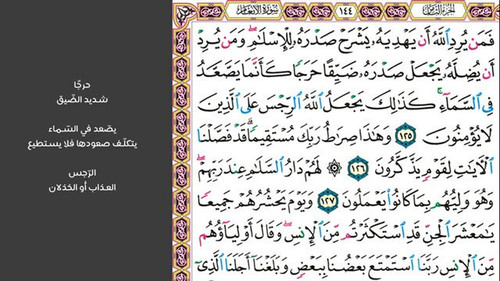 سورة الأنعام
١٤٤
الجزء الثامن
فَمَن يُرِدِ ٱللَّهُ أَن يَهْدِيَهُۥ يَشْرَحْ صَدْرَهُۥ لِلْإِسْلَـٰمِ ۖ وَمَن يُرِدْ
أَن يُضِلَّهُۥ يَجْعَلْ صَدْرَهُۥ ضَيِّقًا حَرَجًا كَأَنَّمَا يَصَّعَّدُ
فِى ٱلسَّمَآءِ ۚ كَذَٰلِكَ يَجْعَلُ ٱللَّهُ ٱلرِّجْسَ عَلَى ٱلَّذِينَ
لَا يُؤْمِنُونَ ١٢٥ وَهَـٰذَا صِرَٰطُ رَبِّكَ مُسْتَقِيمًا ۗ قَدْ فَصَّلْنَا
ٱلْـَٔايَـٰتِ لِقَوْمٍ يَذَّكَّرُونَ ١٢٦ ۞ لَهُمْ دَارُ ٱلسَّلَـٰمِ عِندَ رَبِّهِمْ ۖ
وَهُوَ وَلِيُّهُم بِمَا كَانُوا۟ يَعْمَلُونَ ١٢٧ وَيَوْمَ يَحْشُرُهُمْ جَمِيعًا
يَـٰمَعْشَرَ ٱلْجِنِّ قَدِ ٱسْتَكْثَرْتُم مِّنَ ٱلْإِنسِ ۖ وَقَالَ أَوْلِيَآؤُهُم
مِّنَ ٱلْإِنسِ رَبَّنَا ٱسْتَمْتَعَ بَعْضُنَا بِبَعْضٍ وَبَلَغْنَآ أَجَلَنَا ٱلَّذِىٓ
حرجًا
شديد الضّيق
يصّعد في السّماء
يتكلّف صعودها فلا يستطيع
الرّجس
العذاب أو الخذلان